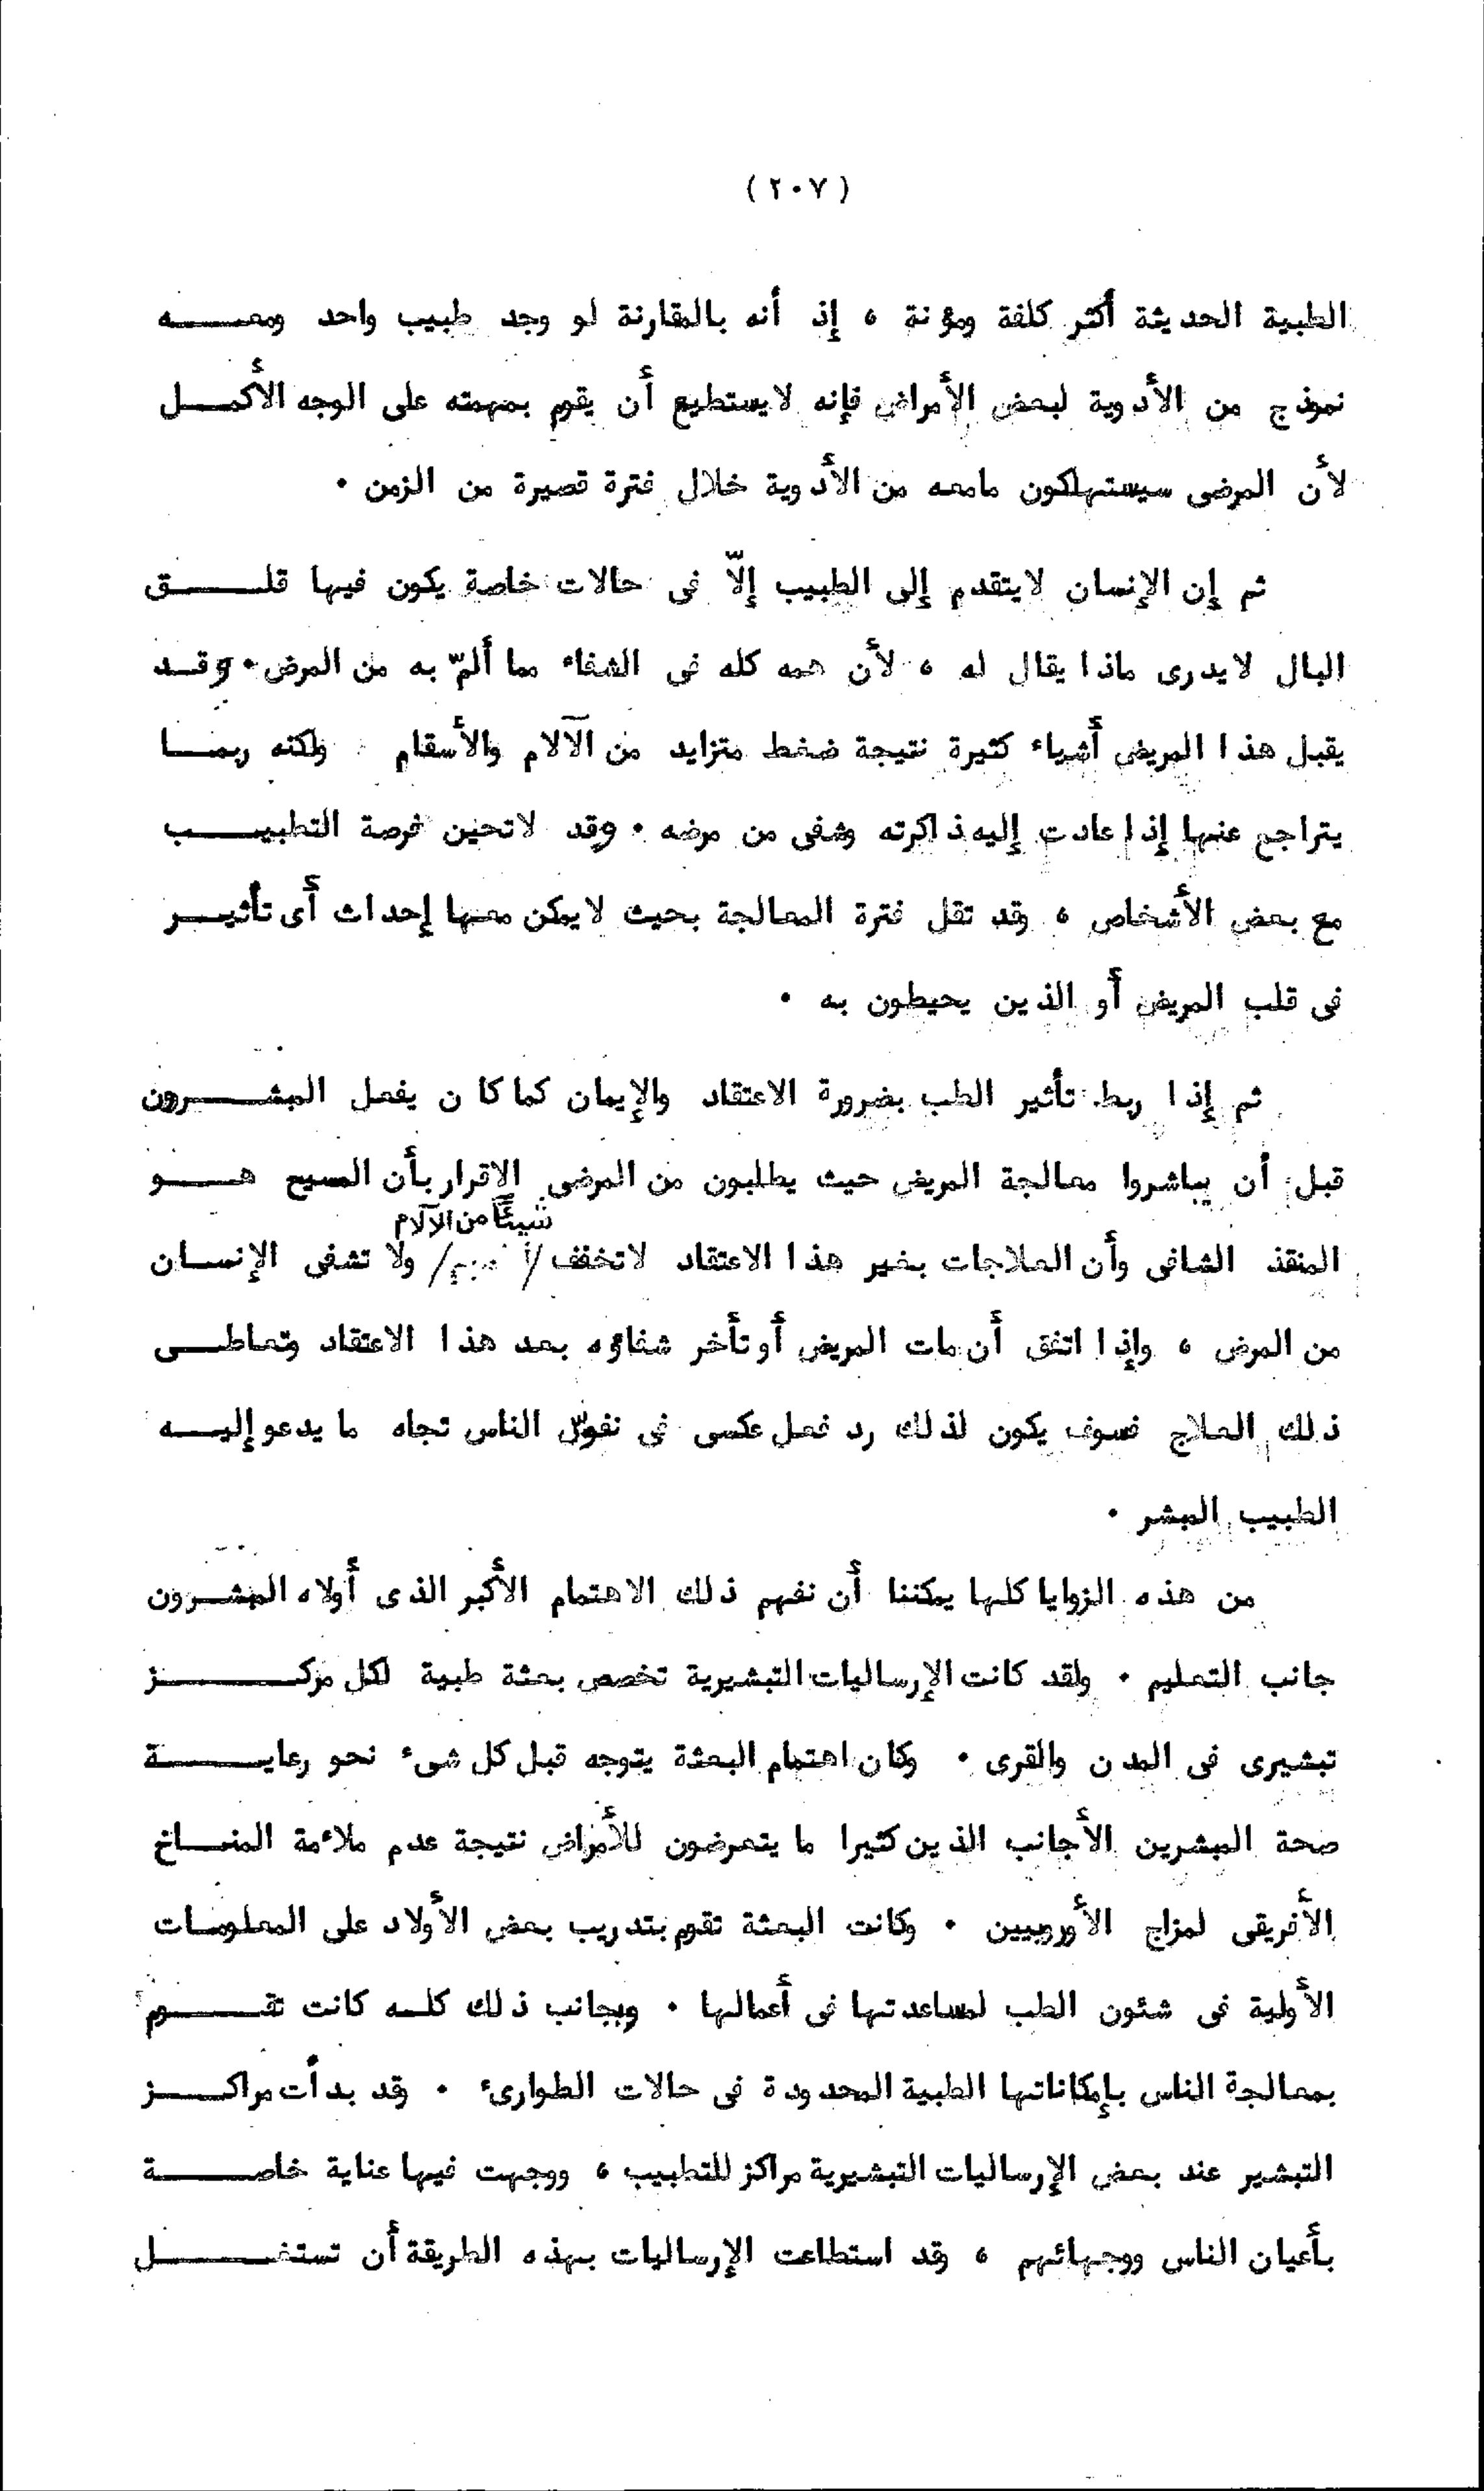 (٢٠٧)
الطبية الحديثة أكثر كلفة ومؤنة ، إذ أنه بالمقارنة لو وجد طبيب واحد ومعـــه
نموذج من الأدوية لبعض الأمراض فإنه لايستطيع أن يقوم بمهمته على الوجه الأكمــل
لأن المرضى سيستهلكون مامعه من الأدوية خلال فترة قصيرة من الزمن .
ثم إن الإنسان لايتقدم إلى الطبيب إلاّ فى حالات خاصة يكون فيها قلــــق
البال لايدرى ماذا يقال له ، لأن همه كله فى الشفاء مما ألمّ به من المرض . وقــد
يقبل هذا المريض أشياء كثيرة نتيجة ضغط متزايد من الآلام والأسقام . ولكنه ربمــا
يتراجع عنها إذا عادت إليه ذاكرته وشفى من مرضه . وقد لاتحين فرصة التطبيــــب
مع بعض الأشخاص ، وقد تقل فترة المعالجة بحيث لايمكن معها إحداث أى تأثيــر
فى قلب المريض أو الذين يحيطون به .
ثم إذا ربط تأثير الطب بضرورة الاعتقاد والإيمان كما كان يفعل المبشــــرون
قبل أن يباشروا معالجة المريض حيث يطلبون من المرضى الإقرار بأن المسيح هـــو
شيئًا من الآلام
المنقذ الشافى وأن العلاجات بغير هذا الاعتقاد لاتخفف ولا تشفى الإنســان
من المرض ، وإذا اتفق أن مات المريض أو تأخر شفاؤه بعد هذا الاعتقاد وتعاطــى
ذلك العلاج فسوف يكون لذلك رد فعل عكسى فى نفوس الناس تجاه ما يدعو إليــه
الطبيب المبشر .
من هذه الزوايا كلها يمكننا أن نفهم ذلك الاهتمام الأكبر الذى أولاه المبشــرون
جانب التعليم . ولقد كانت الإرساليات التبشيرية تخصص بعثة طبية لكل مركـــــز
تبشيرى فى المدن والقرى . وكان اهتمام البعثة يتوجه قبل كل شىء نحو رعايــــة
صحة المبشرين الأجانب الذين كثيرا ما يتعرضون للأمراض نتيجة عدم ملاءمة المنــاخ
الأفريقى لمزاج الأوروبيين . وكانت البعثة تقوم بتدريب بعض الأولاد على المعلومـات
الأولية فى شئون الطب لمساعدتها فى أعمالها . وبجانب ذلك كلــه كانت تقــــوم
بمعالجة الناس بإمكاناتها الطبية المحدودة فى حالات الطوارىء . وقد بدأت مراكـــز
التبشير عند بعض الإرساليات التبشيرية مراكز للتطبيب ، ووجهت فيها عناية خاصــــة
بأعيان الناس ووجهائهم ، وقد استطاعت الإرساليات بهذه الطريقة أن تستغــــل